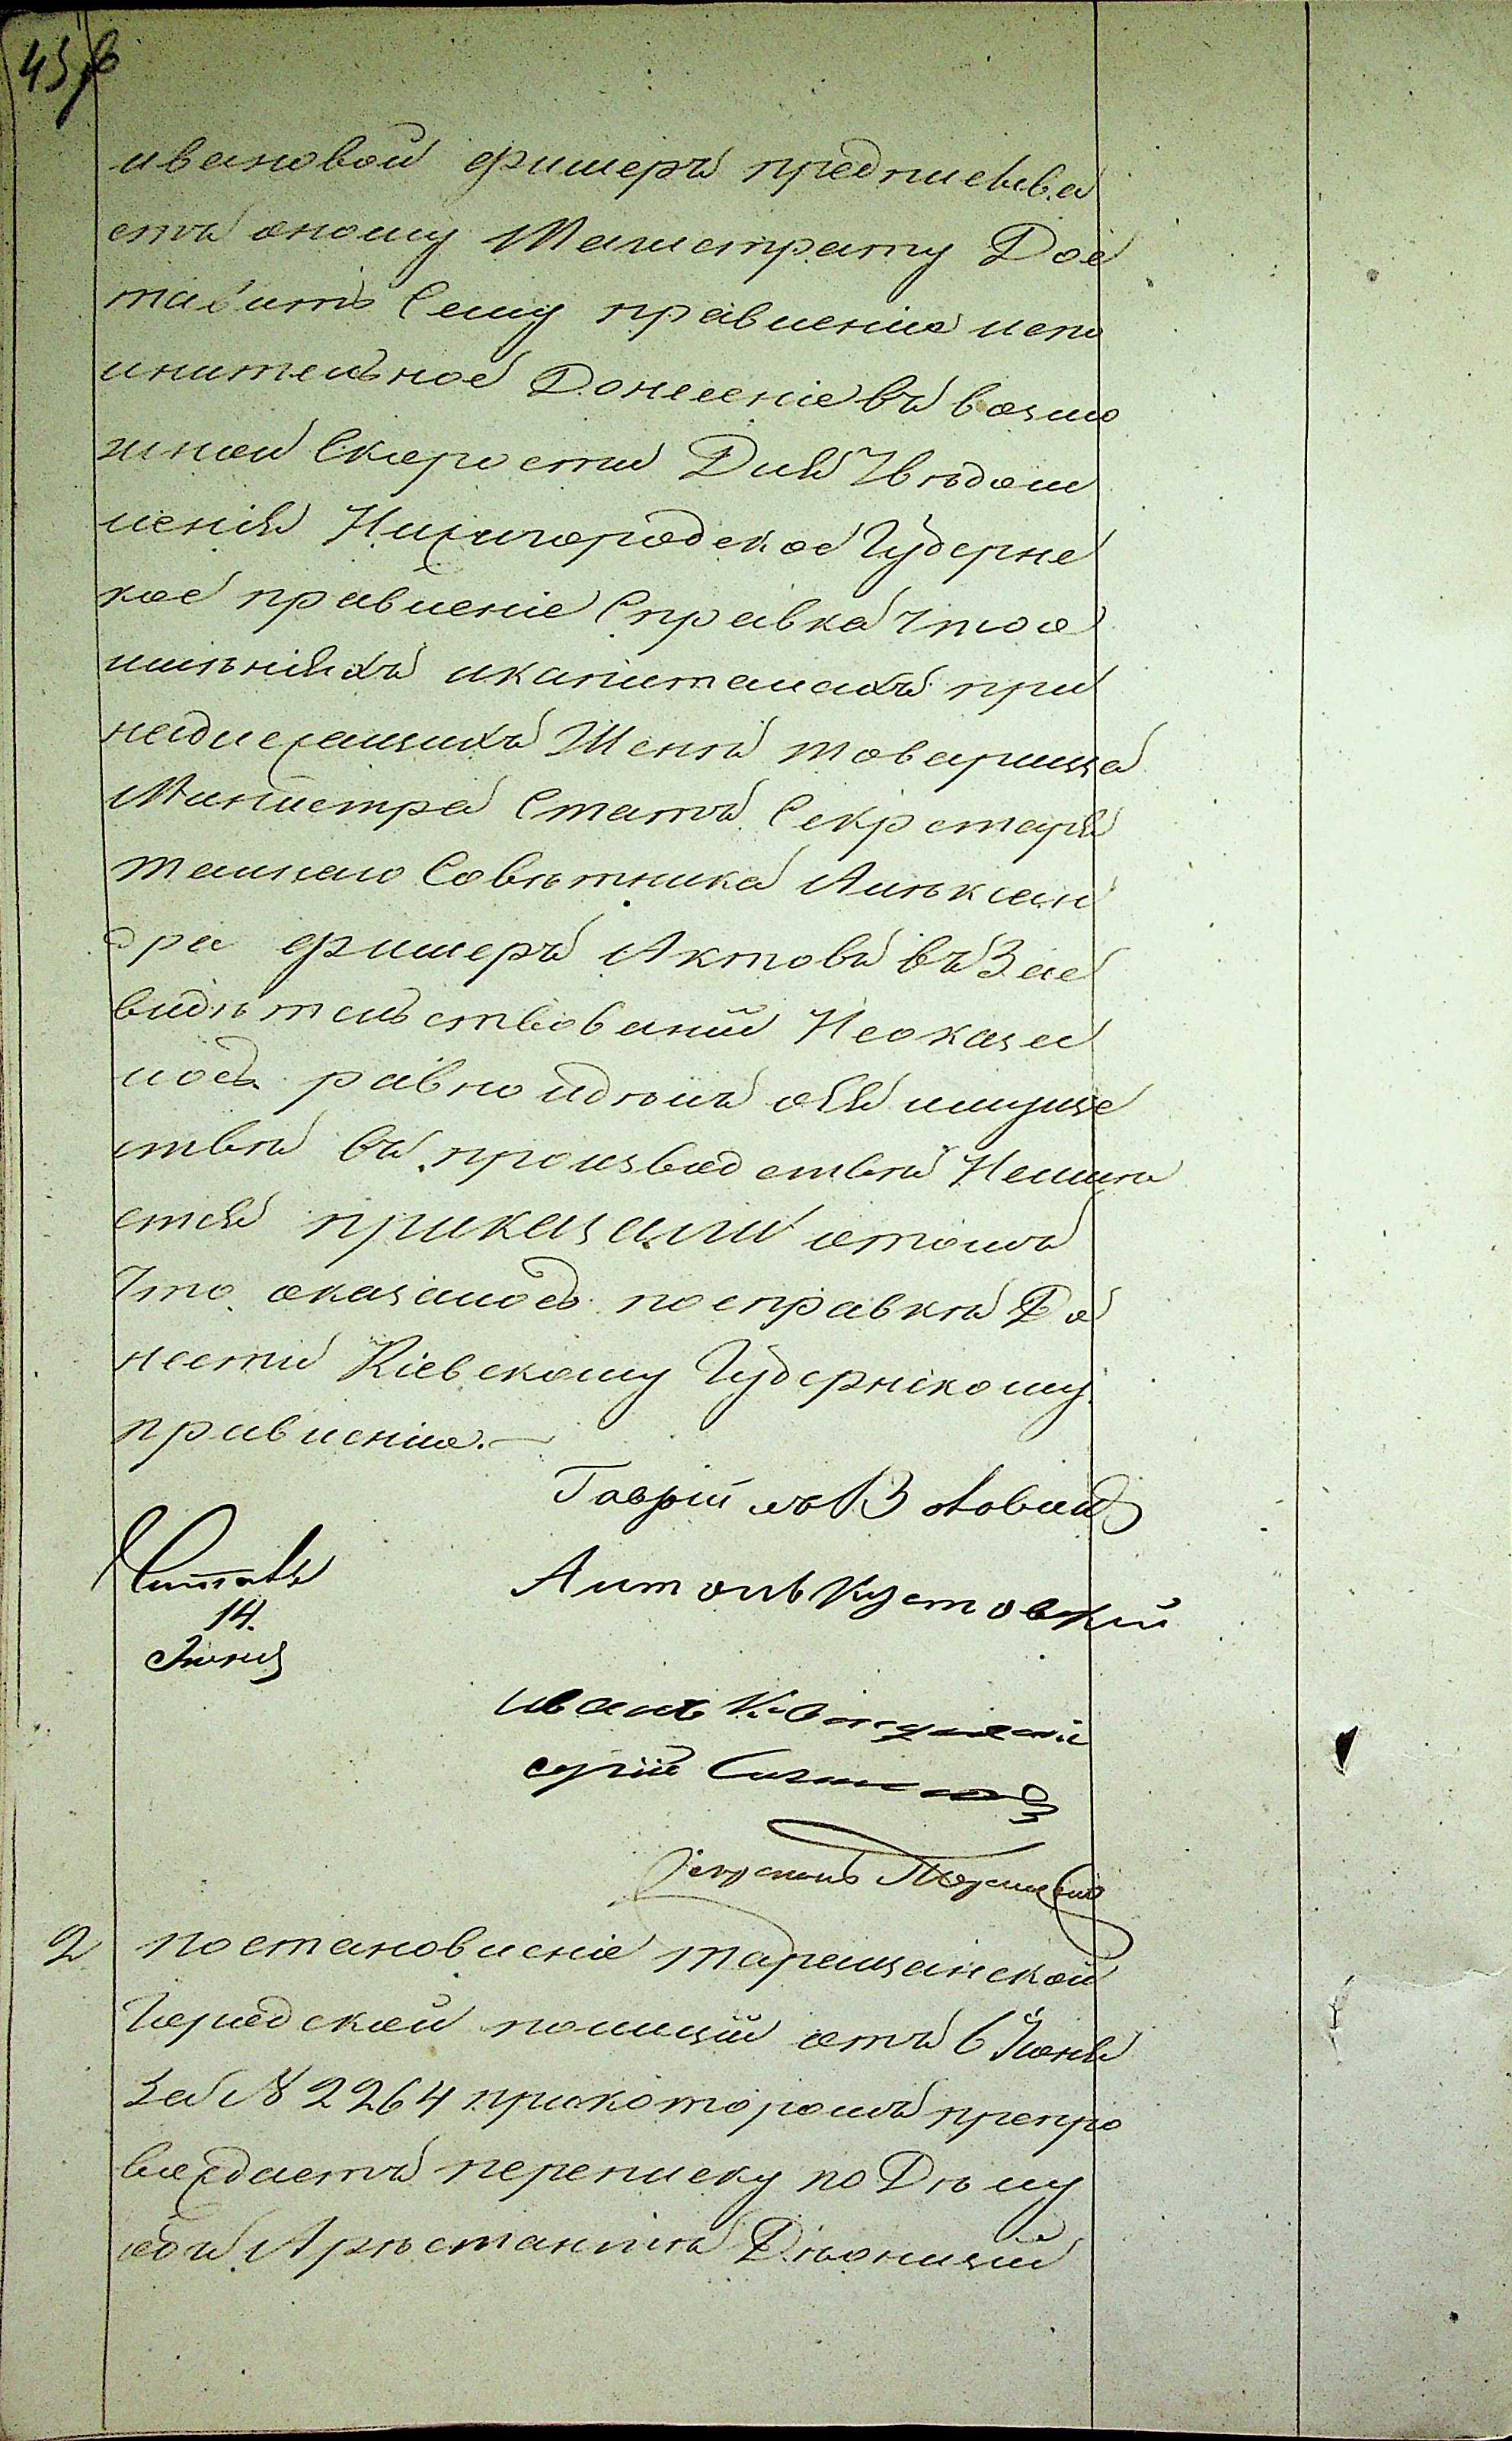 ивановой фишеръ предписыва
етъ оному Магистрату Дос
тавить Сему правлению испо
лнительное Донесение въ возмо
жной Скорости Для Увѣдом
ления Нижигородское Губернс
кое правление Справка Что о
имѣнияхъ и капиталахъ при
надлежащихъ Женѣ товарища
Министра Статъ Секретаря
тайного Совѣтника Алѣксан
дра фишеръ Актовъ въ Зас
видѣтельствований Неоказа
лось равно идѣлъ обѣ имуще
ствѣ въ производствѣ Неимѣ
ется приказали отомъ
Что оказалось посправкѣ До
нести Кіевскому Губернскому
правлению.
Гаврійлъ
Антонъ Кустовский
Читалъ
14.
Июня
иванъ
2 постановление таращанской
Городской полиций отъ 6 Июня
За № 2264 прикоторомъ препро
вождаетъ переписку по Дѣлу
объ Арѣстантѣ Дионизий